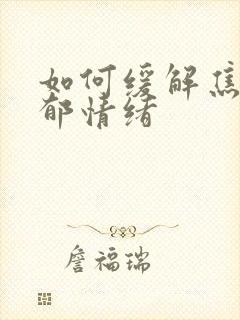 如何缓解焦
郁情绪
詹福瑞